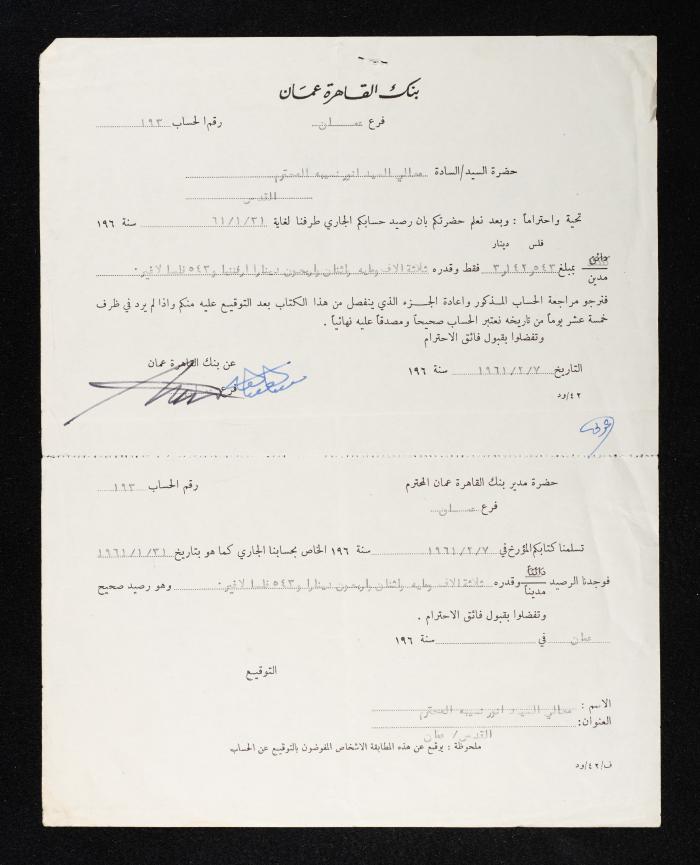 بنك القاهرة عمان
فرع عمــان رقم الحساب ١٩٣
حضرة السيد/السادة معالي السيد انور نسيبه المحترم
القدس
تحية واحتراماً : وبعد نعلم حضرتكم بان رصيد حسابكم الجاري طرفنا لغاية ٦١/١/٣١ سنة ١٩٦
فلس دينار
دائن
مدين
بمبلغ ٥٤٣ر٣١٤٢ فقط وقدره ثلاثة الاف ومايه واثنان واربعون دينارا اردنيا و٥٤٣ فلسا لاغير .
فنرجو مراجعة الحساب المذكور واعادة الجزء الذي ينفصل من هذا الكتاب بعد التوقيع عليه منكم واذا لم يرد في ظرف
خمسة عشر يوماً من تاريخه نعتبر الحساب صحيحاً ومصدقاً عليه نهائياً .
وتفضلوا بقبول فائق الاحترام
عن بنك القاهرة عمان
التاريخ ١٩٦١/٢/٧ سنة ١٩٦
فرع
٤٢/ود
حضرة مدير بنك القاهرة عمان المحترم رقم الحساب ١٩٣
فرع عمــان
تسلمنا كتابكم المؤرخ في ١٩٦١/٢/٧ سنة ١٩٦ الخاص بحسابنا الجاري كما هو بتاريخ ١٩٦١/١/٣١
دائناً
فوجدنا الرصيد مديناً وقدره ثلاثة الاف ومايه واثنان واربعون دينارا و٥٤٣ فلسا لاغير . وهو رصيد صحيح
وتفضلوا بقبول فائق الاحترام .
عمان في سنة ١٩٦
التوقيع
الاسم : معالي السيد انور نسيبه المحترم
العنوان:
القدس/ عمان
ملحوظة : يوقع عن هذه المطابقة الاشخاص المفوضون بالتوقيع عن الحساب
ف/٤٢/ود